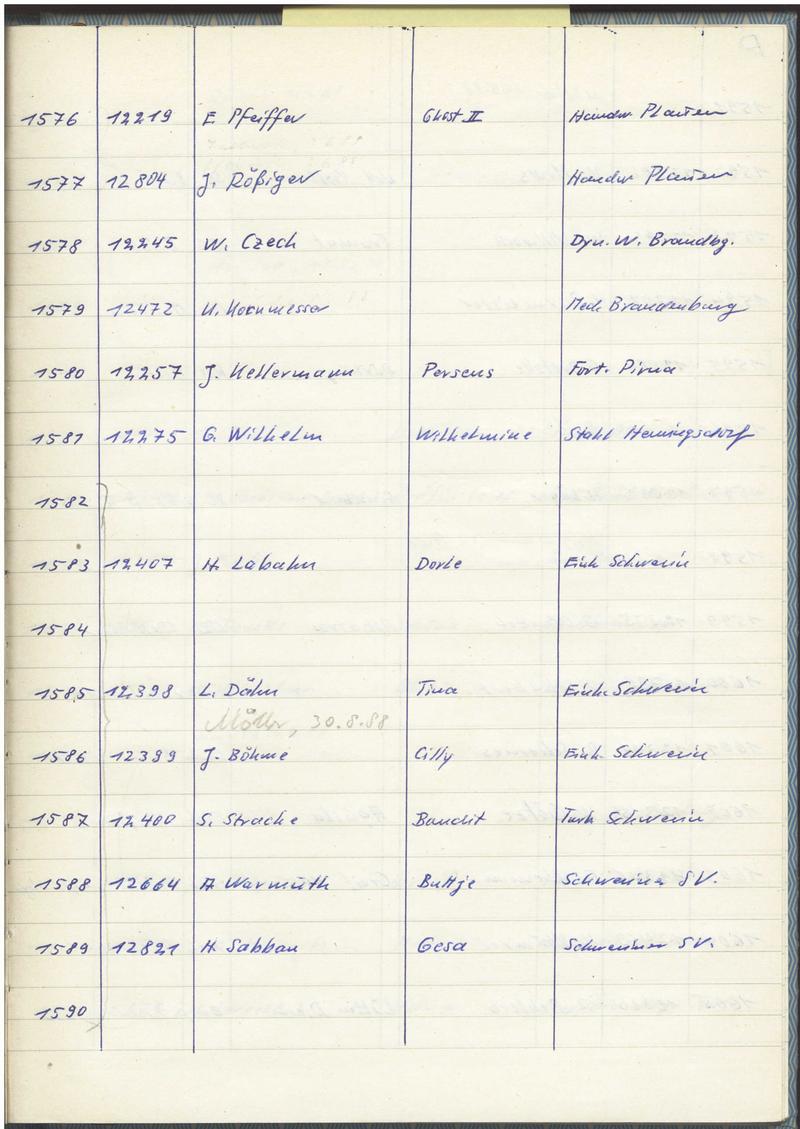 1576 12219 E Pfeiffer Ghost II Handw Plauen
1577 12804 J. Rößiger Handw Plauen
1578 12245 W. Czech Dyn. W. Brandbg.
1579 12472 U. Kornmesser Med. Brandenburg
1580 12257 J. Kellermann Perseus Fort. Pirna
1581 12275 G. Wilhelm Wilhelmine Stahl Hennigsdorf
1582
1583 12407 H. Labahn Dorte Einh Schwerin
1584
1585 12398 L. Dähn Tina Einh. Schwerin
30.8.88
1586 12399 J. Böhme Cilly Einh Schwerin
1587 12400 S. Strache Bandit Turb Schwerin
1588 12664 A Warmuth Buttje Schweriner SV.
1589 12821 H. Sabban Gesa Schweriner SV.
1590